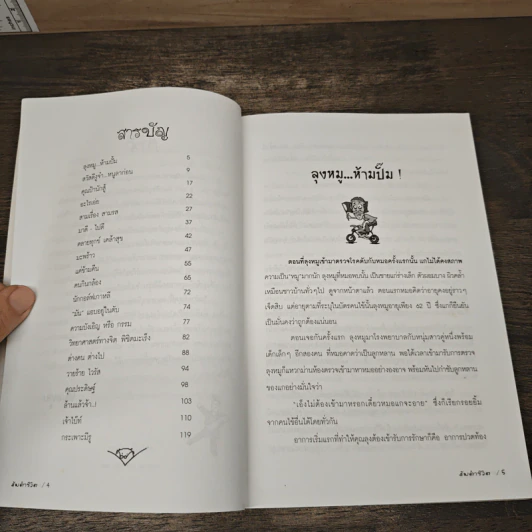 สารบัญ
ลุงหมู...ห้ามปั๊ม 5
สวัสดีรูจ๋า...หนูลาก่อน 9
คุณป้านักสู้ 17
อะไรเอ่ย 22
สามเรื่อง สามรส 27
มาดี - ไปดี 37
คลายทุกข์ เคล้าสุข 42
มะพร้าว 47
แค่ข้ามคืน 55
คนในกล้อง 65
นักกอล์ฟเกาหลี 71
"มัน" แอบอยู่ในตับ 74
ความบังเอิญ หรือ กรรม 77
วิทยาศาสตร์ทางจิต พิชิตมะเร็ง 82
ต่างคน ต่างไป 88
วายร้าย ไวรัส 94
คุณประดิษฐ์ 98
ด้านแล้วจ้า..! 103
เจ้าโบ้ท์ 110
กระเพาะมีรู 119
/ 4
ลุงหมู...ห้ามปั๊ม !
ตอนที่ลุงหมูเข้ามาตรวจโรคตับกับหมอครั้งแรกนั้น แกไม่ได้คงสภาพ
ความเป็น"หมู"มากนัก ลุงหมูที่หมอพบนั้น เป็นชายแก่ร่างเล็ก ตัวผอมบาง ผิวคล้ำ
เหมือนชาวบ้านทั่วๆไป ดูจากหน้าตาแล้ว ตอนแรกหมอคิดว่าอายุคงอยู่ราวๆ
เจ็ดสิบ แต่อายุตามที่ระบุในบัตรคนไข้นั้นลุงหมูอายุเพียง 62 ปี ซึ่งแกก็ยืนยัน
เป็นมั่นคงว่าถูกต้องแน่นอน
ตอนเจอกันครั้งแรก ลุงหมูมาโรงพยาบาลกับหนุ่มสาวคู่หนึ่งพร้อม
เด็กเล็กๆ อีกสองคน ที่หมอคาดว่าเป็นลูกหลาน พอได้เวลาเข้ามารับการตรวจ
ลุงหมูก็แหวกม่านห้องตรวจเข้ามาหาหมออย่างองอาจ พร้อมหันไปกำชับลูกหลาน
ของแกอย่างมั่นใจว่า
"เอ็งไม่ต้องเข้ามาหรอกเดี๋ยวหมอแกจะอาย" ซึ่งก็เรียกรอยยิ้ม
จากคนไข้อื่นได้โดยทั่วกัน
อาการเริ่มแรกที่ทำให้คุณลุงต้องเข้ารับการรักษาก็คือ อาการปวดท้อง
/ 5